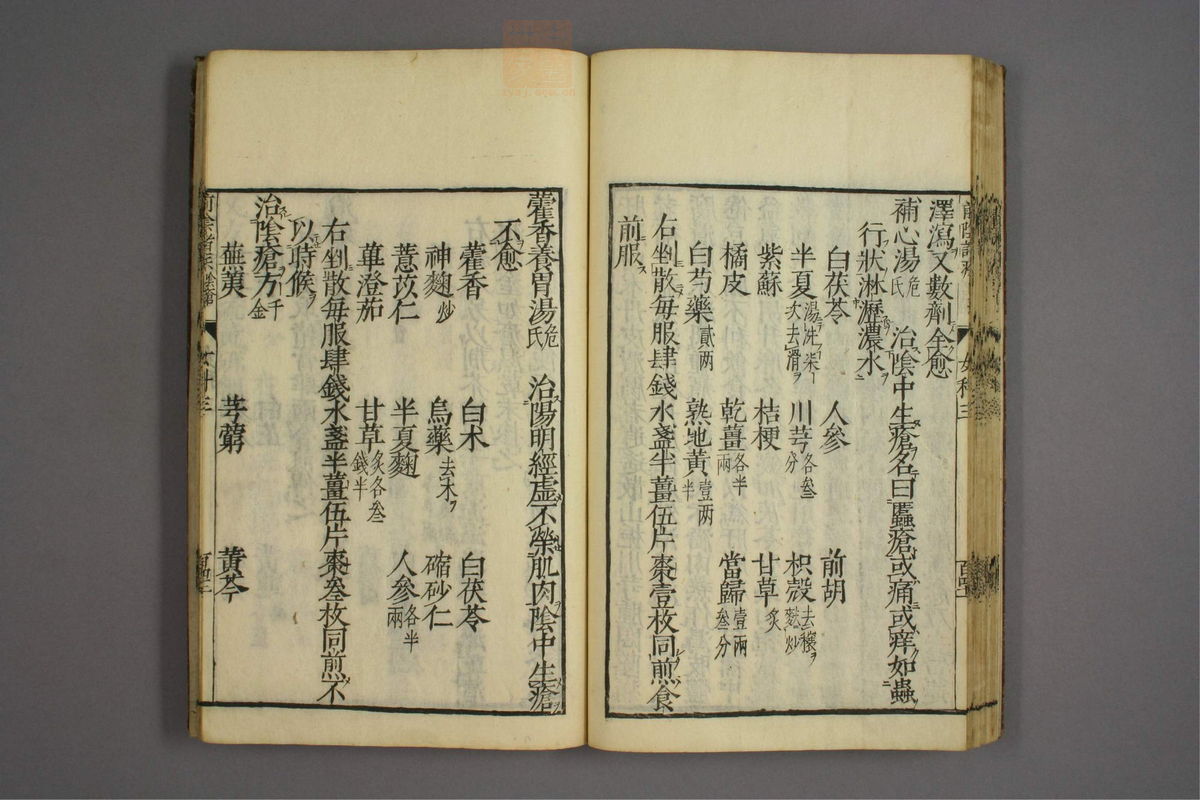 澤瀉又數劑全愈
補心湯危氏 治陰中生瘡名曰䘌瘡或痛或痒如蟲
行狀淋瀝濃水
白茯苓 人參 前胡
半夏湯洗柒次去滑 川芎各叁分 枳殼去穰麩炒
紫蘇 桔梗 甘草炙
橘皮 乾薑各半兩 當歸壹兩叁分
白芍藥貳兩 熟地黃壹兩半
右剉散每服肆錢水盞半薑伍片棗壹枚同煎食
前服
藿香養胃湯危氏 治陽明經虛不榮肌肉陰中生瘡
不愈
藿香 白朮 白茯苓
神麴炒 烏藥去木 縮砂仁
薏苡仁 半夏麴 人參各半兩
蓽澄茄 甘草炙各叁錢半
右剉散每服肆錢水盞半薑伍片棗叁枚同煎不
以時候
治陰瘡方千金
蕪荑 芎藭 黃芩